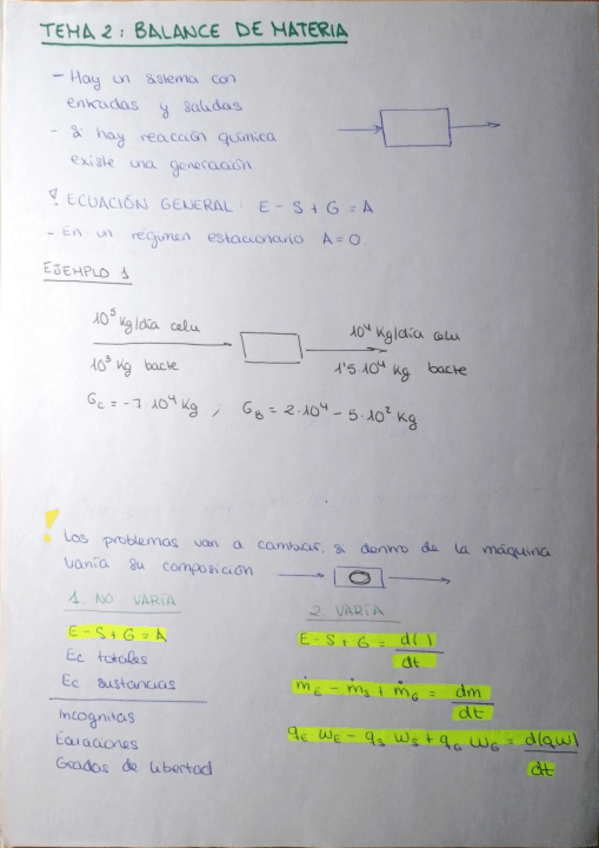 TEMA 2: BALANCE DE MATERIA
- Hay un sistema con
entradas y salidas
- Si hay reacción química
existe una generación
! ECUACIÓN GENERAL: E - S + G = A
- En un régimen estacionario A = 0.
EJEMPLO 1
10⁵ Kg/día celu
10⁴ Kg/día celu
10³ Kg bacte
1'5·10⁴ Kg bacte
G_C = -7·10⁴ Kg ; G_B = 2·10⁴ - 5·10² Kg
! Los problemas van a cambiar, si dentro de la máquina
varía su composición
1. NO VARÍA
E - S + G = A
Ec totales
Ec sustancias
Incognitas
Ecuaciones
Grados de libertad
2. VARÍA
E - S + G = d( )/dt
ṁ_E - ṁ_S + ṁ_G = dm/dt
q_E W_E - q_S W_S + q_G W_G = d(qW)/dt